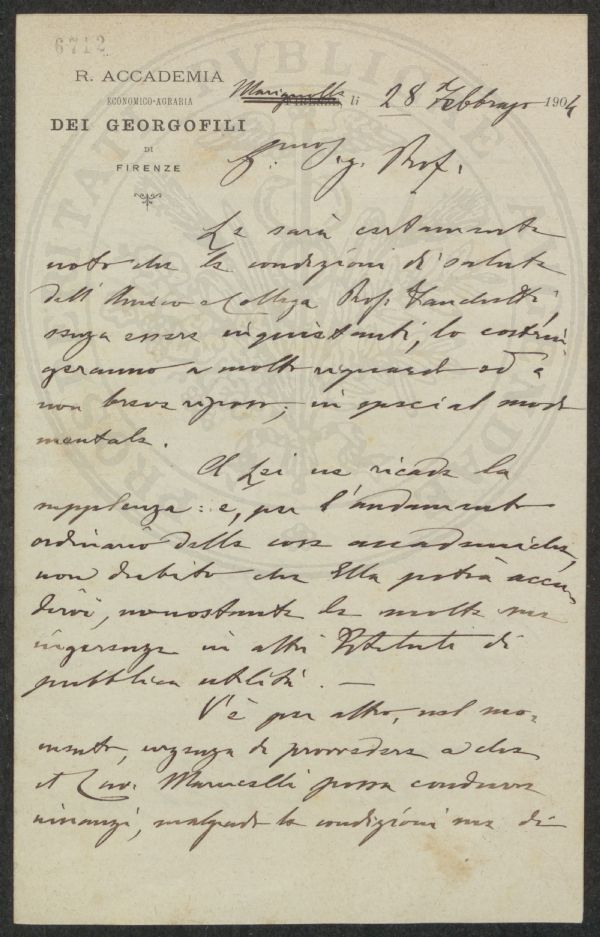 6712
R. ACCADEMIA
ECONOMICO-AGRARIA
DEI GEORGOFILI
DI
FIRENZE
Marignolle li 28 Febbraio 1904
Sig. Prof.
Le sarà certamente
noto che le condizioni di salute
dell'Amico e Collega Prof.
senza essere inquietanti, lo costrin
geranno a molti riguardi ed a
non breve riposo, in special modo
mentale.
A Lei ne ricade la
supplenza: e, per l'andamento
ordinario delle cose accademiche,
non dubito che Ella potrà accu
dirvi, nonostante le molte sue
ingerenze in altri Istituti di
pubblica utilità. —
V'è per altro, nel mo-
mento, urgenza di provvedere a che
il Cav. Marucelli possa condurre
innanzi, malgrado le condizioni sue di
PROSPERITATI PVBLICAE AVGENDAE